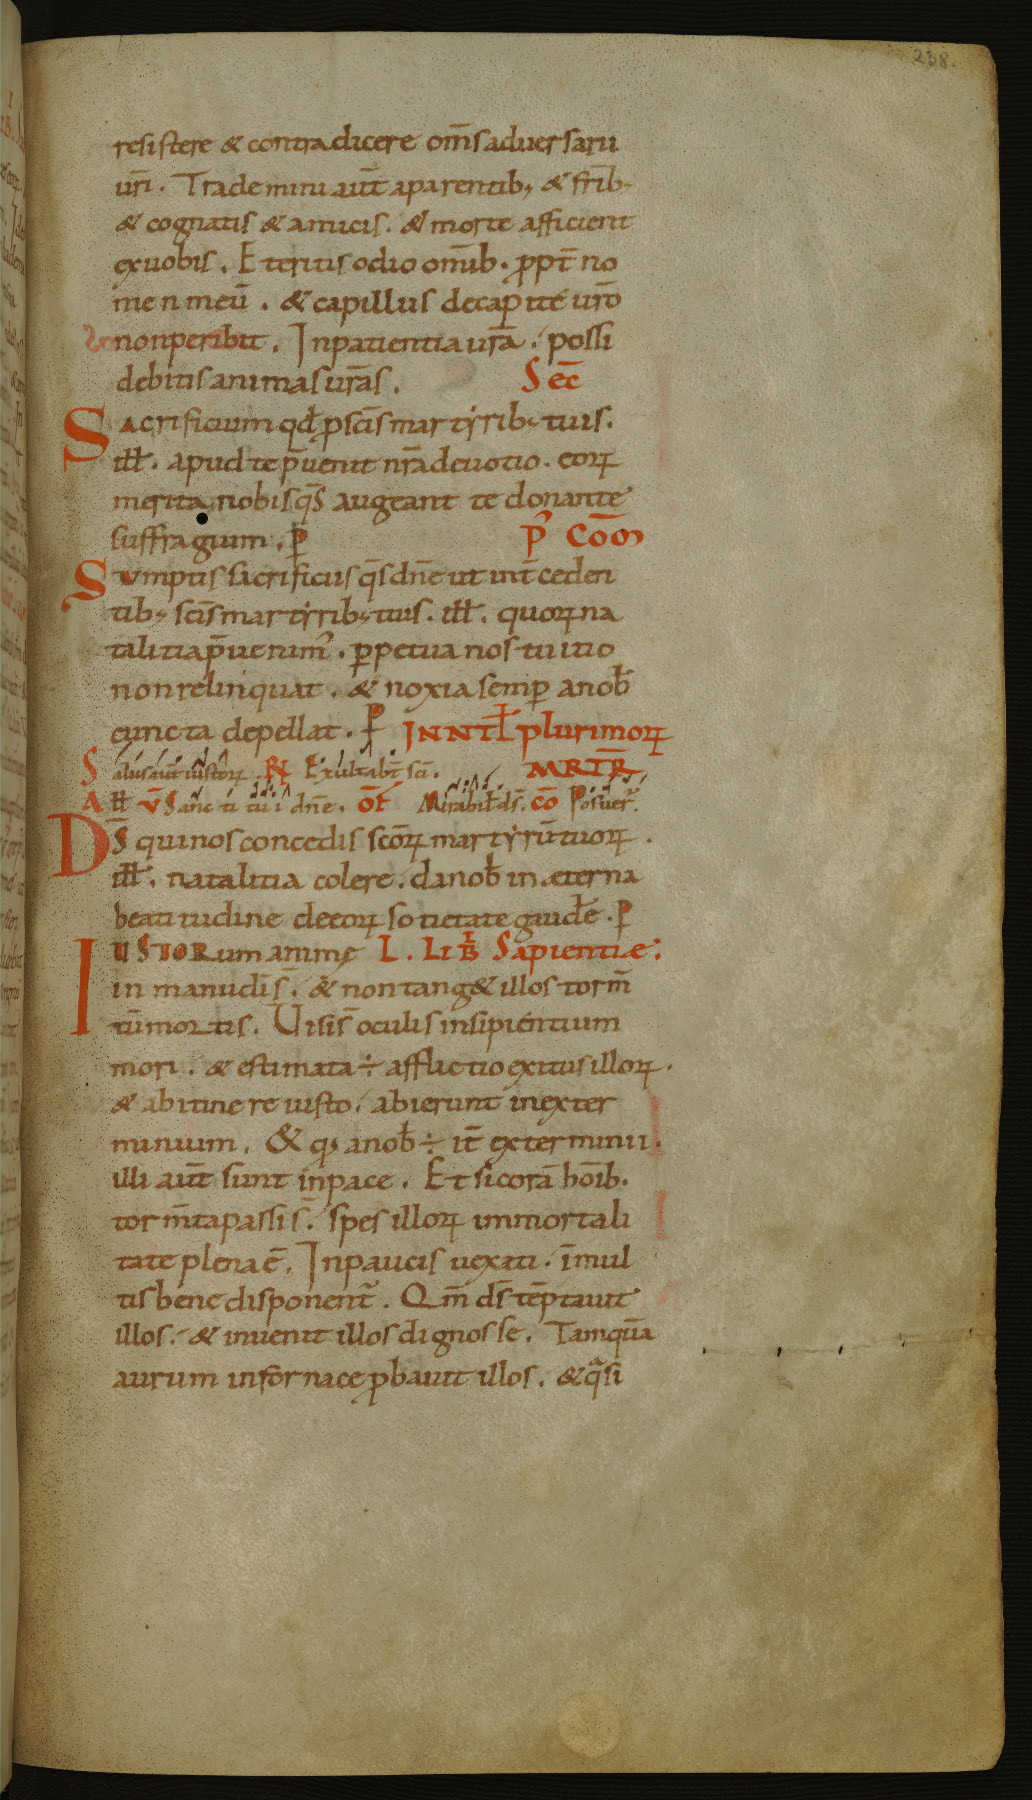 238.
resistere & contradicere om̄s aduersarii
ur̄i. Trademini aut̄ aparentib; & fr̄ib;
& cognatis & amicis. & morte afficient
exuobis. Eteritis odio omīb. ꝓpt̄ no
men meū. & capillus decapite ur̄o
nonperibit. Inpatientia ur̄a. possi
debitis animas ur̄as. Sec̄
Sacrificium qđ ꝓ sc̄is martyrib; tuis.
ill̄. apud te p̄uenit nr̄a deuotio. eoꝝ
merita nobis q̄s augeant te donante
suffragium. ꝑ P̾ Cōm
Sumptis sacrificiis q̄s dn̄e ut int̄ceden
tib; sc̄is martyrib; tuis. ill̄. quoꝝ na
talitia p̄uenim̾. ꝑpetua nos tuitio
non relinquat. & noxia semꝑ anob̄
cuncta depellat. ꝑ IN NT̄L plurimoꝝ
Salus aut̄ iustoꝝ. R̄ Exultab̄t sc̄i. MRTR̄
All̄ V̄ Sancti tui dn̄e. OF̄ Mirabil̄ ds̄. CŌ Posuer̄.
Ds̄ qui nos concedis sc̄oꝝ martyrū tuoꝝ.
ill̄. natalitia colere. da nob̄ in æterna
beatitudine deeoꝝ sotietate gaud̄e. ꝑ
IUSTORum animę L. LIB̄ Sapientiæ.
in manu dī s̄. & non tang& illos torm̄
tū mortis. Uisi s̄ oculis insipientium
mori. & estimata ÷ afflictio exitus illoꝝ.
& abitinere iusto. abierunt inexter
minium. & qd anob̄ ÷ it̄ exterminii.
illi aut̄ sunt inpace. Et si corā hoīb.
torm̄ta passi s̄. spes illoꝝ immortali
tate plena ē. Inpaucis uexati. ī mul
tis bene disponent̄. Qm̄ ds̄ tēptauit
illos. & inuenit illos dignos se. Tamquā
aurum infornace ꝓbauit illos. & qͣsi